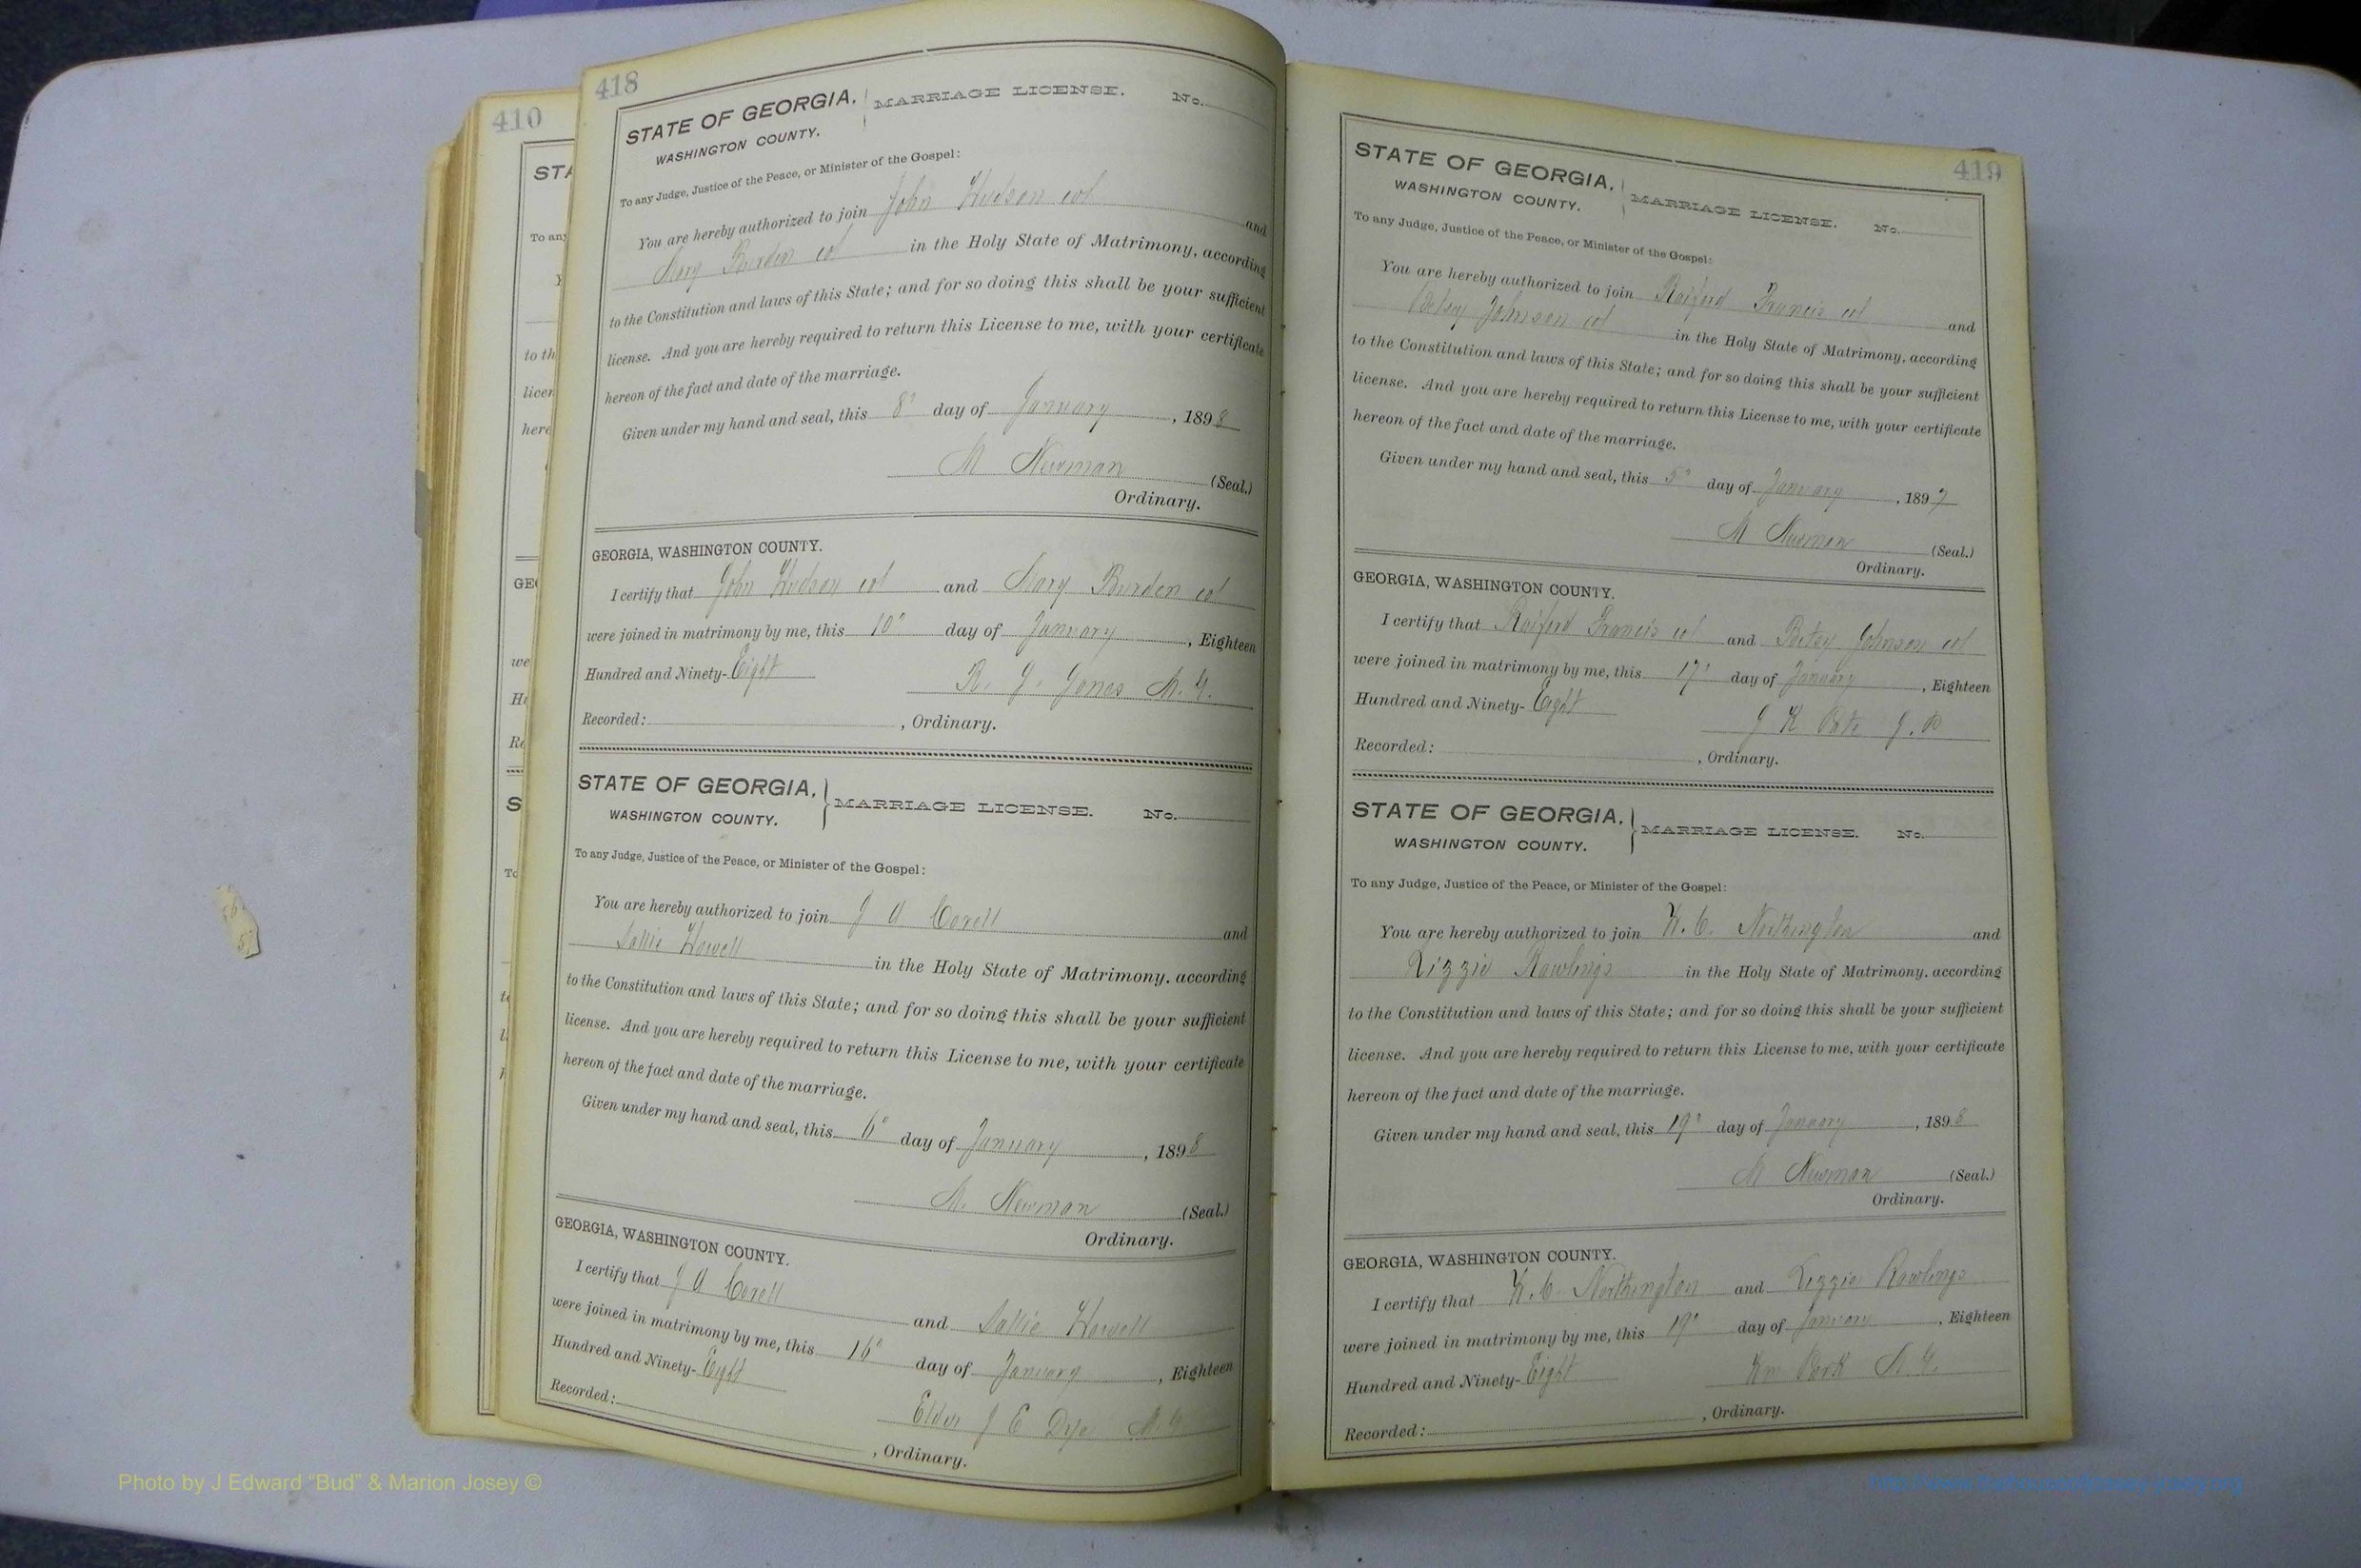 410
STA
To any
Y
to th
licen
here
GEO
we
Hu
Re
S
To
418
STATE OF GEORGIA, MARRIAGE LICENSE. No.
WASHINGTON COUNTY.
To any Judge, Justice of the Peace, or Minister of the Gospel:
You are hereby authorized to join John Hudson col and
Mary Burden col in the Holy State of Matrimony, according
to the Constitution and laws of this State; and for so doing this shall be your sufficient
license. And you are hereby required to return this License to me, with your certificate
hereon of the fact and date of the marriage.
Given under my hand and seal, this 8" day of January, 1898
M Newman (Seal.)
Ordinary.
GEORGIA, WASHINGTON COUNTY.
I certify that John Hudson col and Mary Burden col
were joined in matrimony by me, this 10" day of January, Eighteen
Hundred and Ninety-Eight R. J. Jones M.G.
Recorded: , Ordinary.
STATE OF GEORGIA, MARRIAGE LICENSE. No.
WASHINGTON COUNTY.
To any Judge, Justice of the Peace, or Minister of the Gospel:
You are hereby authorized to join J A Covell and
Sallie Howell in the Holy State of Matrimony, according
to the Constitution and laws of this State; and for so doing this shall be your sufficient
license. And you are hereby required to return this License to me, with your certificate
hereon of the fact and date of the marriage.
Given under my hand and seal, this 6" day of January, 1898
M. Newman (Seal.)
Ordinary.
GEORGIA, WASHINGTON COUNTY.
I certify that J A Covell and Sallie Howell
were joined in matrimony by me, this 16" day of January, Eighteen
Hundred and Ninety-Eight Elder J E Dye M G
Recorded: , Ordinary.
419
STATE OF GEORGIA, MARRIAGE LICENSE. No.
WASHINGTON COUNTY.
To any Judge, Justice of the Peace, or Minister of the Gospel:
You are hereby authorized to join Raiford Francis col and
Betsy Johnson col in the Holy State of Matrimony, according
to the Constitution and laws of this State; and for so doing this shall be your sufficient
license. And you are hereby required to return this License to me, with your certificate
hereon of the fact and date of the marriage.
Given under my hand and seal, this 5" day of January, 1897
M Newman (Seal.)
Ordinary.
GEORGIA, WASHINGTON COUNTY.
I certify that Raiford Francis col and Betsy Johnson col
were joined in matrimony by me, this 17" day of January, Eighteen
Hundred and Ninety-Eight J K J.P
Recorded: , Ordinary.
STATE OF GEORGIA, MARRIAGE LICENSE. No.
WASHINGTON COUNTY.
To any Judge, Justice of the Peace, or Minister of the Gospel:
You are hereby authorized to join W. C. Northington and
Lizzie Rawlings in the Holy State of Matrimony, according
to the Constitution and laws of this State; and for so doing this shall be your sufficient
license. And you are hereby required to return this License to me, with your certificate
hereon of the fact and date of the marriage.
Given under my hand and seal, this 19" day of January, 1898
M Newman (Seal.)
Ordinary.
GEORGIA, WASHINGTON COUNTY.
I certify that W. C. Northington and Lizzie Rawlings
were joined in matrimony by me, this 19" day of January, Eighteen
Hundred and Ninety-Eight Wm Park M.G.
Recorded: , Ordinary.
Photo by J Edward "Bud" & Marion Josey ©